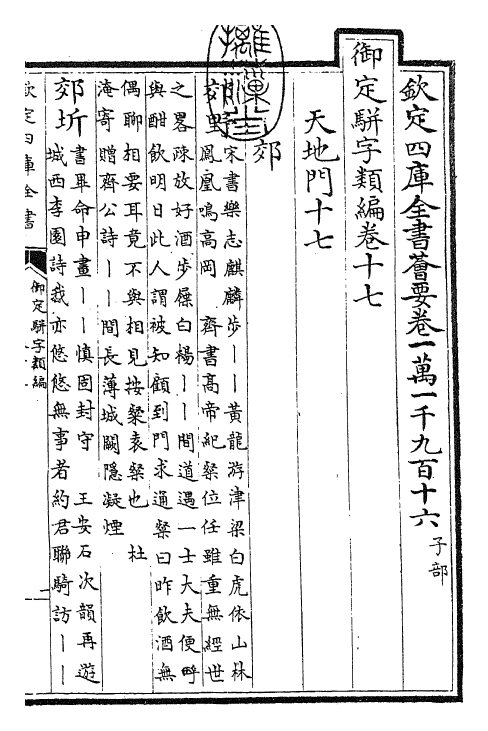 欽定四庫全書薈要卷一萬一千九百十六 子部
御定駢字類編卷十七
天地門十七
郊
郊野 宋書樂志麒麟步丨丨黃龍游津梁白虎依山林
鳳凰鳴高岡 齊書高帝紀粲位任雖重無經世
之畧疎放好酒步屧白楊丨丨間道遇一士大夫便呼
與酣飲明日此人謂被知顧到門求通粲曰昨飲酒無
偶聊相要耳竟不與相見按粲袁粲也 杜
淹寄贈齊公詩丨丨間長薄城闕隱凝煙
郊圻 書畢命申畫丨丨慎固封守 王安石次韻再遊
城西李園詩我亦悠悠無事者約君聯騎訪丨丨
欽定四庫全書
御定駢字類編
一